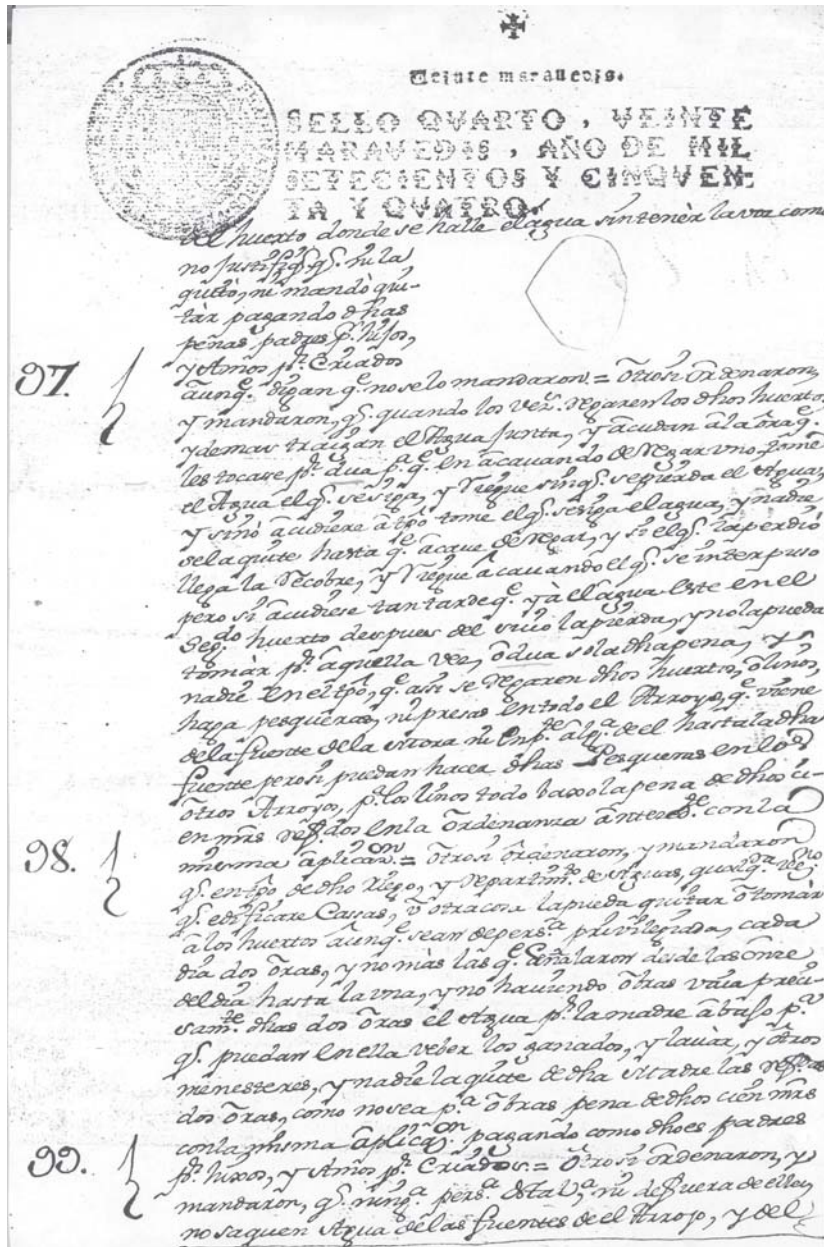 Veinte maravedis.
SELLO QVARTO, VEINTE
MARAVEDIS, AÑO DE MIL
SETECIENTOS Y CINQVEN-
TA Y QVATRO.
del huerto donde se halle el agua sin tenèr la voz como
no justifiq.e q.e ni la
quitò, ni mandò qui-
tàr pagando dhas
penas padres p.r hijos,
y Amos p.r Criados
97. aunq.e digan q.e no se lo mandaron = Otrosi ordenaron,
y mandaron, q.e quando los vez.s regaren los dhos huertos,
y demas traigan el Agua junta, y acudan à la ôra q.e
les tocare p.r dua p.a q.e en acavando de regar uno tome
el Agua el q.e se siga, y riegue sin q.e se pierda el Agua,
y sinò acudiere à tpô tome el q.e se siga el agua, y nadie
se la quite hasta q.e acave de regar, y si el q.e la perdiò
llega la recobre, y riegue acavando el q.e se interpuso
pero si acudiese tan tarde q.e yà el agua este en el
seg.do huerto despues del suio la pierda, y no la pueda
tomàr p.r aquella vez, ô dua so la dha pena, y
nadie en el tpô, q.e asi se regaren dhos huertos, ô linos,
haga pesqueras, ni presas en todo el Arroyo, q.e viene
de la fuente de la ni en p.te alg.a de el hasta la dha
fuente pero si puedan hacer dhas Pesqueras en los
ôtros Arroyos, p.a los linos todo baxo la pena de dhos ci-
en mrs en la ôrdenanza anteced.te con la
98. misma aplicaz.on = Otrosi ôrdenaron, y mandaron
q.e en tpô de dho riego, y repartim.to de Aguas, qualq.a vez.no
q.e edificare Cassas, ù otra cosa la pueda quitar ô tomàr
à los huertos aunq.e sean de pers.a privilegiada, cada
dia dos ôras, y no màs las q.e señalaron desde las ônze
del dia hasta la vna, y no haviendo ôbras vaia preci-
sam.te dhas dos ôras el Agua p.r la madre abaxo p.a
q.e puedan en ella veber los ganados, y lavàr, y ôtros
menesteres, y nadie la quite de dha madre las
dos ôras, como no sea p.a ôbras pena de dhos cien mrs
con la misma aplicaz.on pagando como dho es padres
99. p.r hixos, y Amos p.r Criados = Otrosi ôrdenaron, y
mandaròn, q.e ning.a pers.a de esta V.a, ni de fuera de ella,
no saquen Agua de las fuentes de el Arroyo, y del